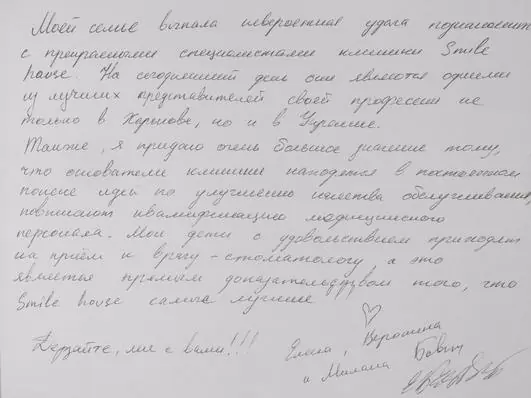 Моей семье выпала невероятная удача познакомиться
с прекрасными специалистами клиники Smile
house. На сегодняшний день они являются одними
из лучших представителей своей профессии не
только в Харькове, но и в Украине.
Также, я придаю очень большое значение тому,
что основатели клиники находятся в постоянном
поиске идеи по улучшению качества обслуживания,
повышают квалификацию медицинского
персонала. Мои дети с удовольствием приходят
на приём к врачу-стоматологу, а это
является прямым доказательством того, что
Smile house самые лучшие
Дерзайте, мы с вами!!!
Елена, Вероника
и Милана